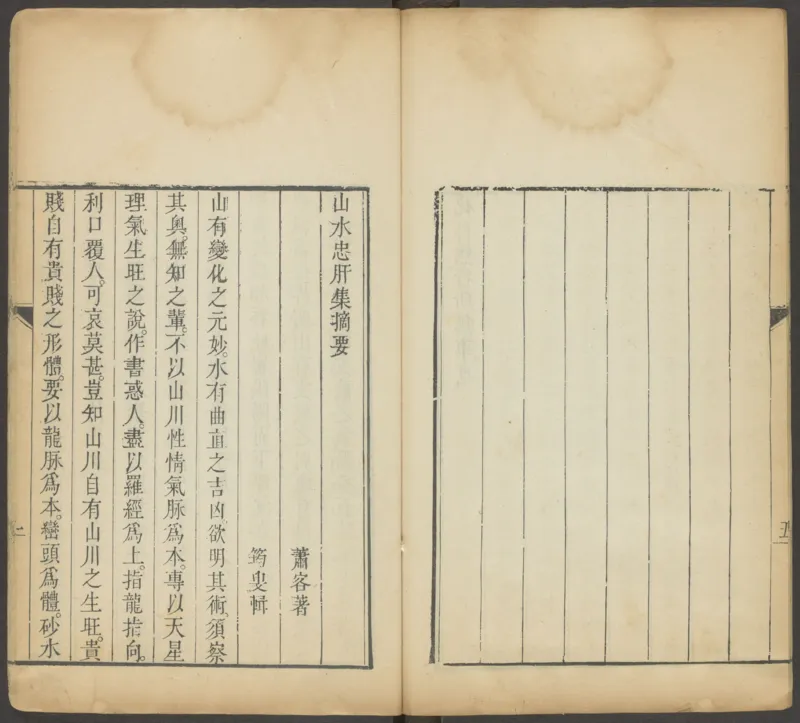 山水忠肝集摘要
蕭客著
筠叟輯
山有變化之元妙。水有曲直之吉凶。欲明其術。須察
其奧。無知之輩。不以山川性情氣脉爲本。專以天星
理氣生旺之說。作書惑人。盡以羅經爲上。指龍指向。
利口覆人。可哀莫甚。豈知山川自有山川之生旺。貴
賤自有貴賤之形體。要以龍脉爲本。巒頭爲體。砂水
二
五